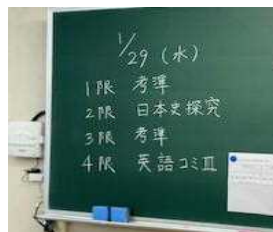 1/29 (水)
1限 考準
2限 日本史探究
3限 考準
4限 英語コミⅢ